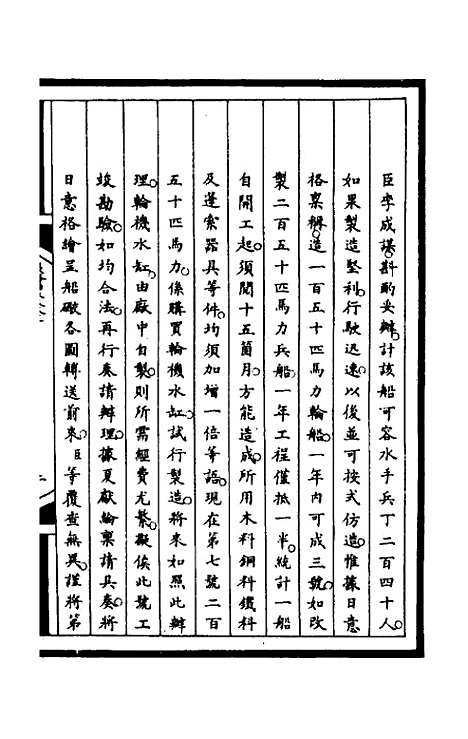 臣李成謀斟酌妥辦計該船可容水手兵丁二百四十人
如果製造堅利行駛迅速以後並可按式仿造惟據日意
格稟稱造一百五十匹馬力輪船一年內可成三號如改
製二百五十匹馬力兵船一年工程僅抵一半統計一船
自開工起須閱十五箇月方能造成所用木料銅料鐵料
及蓬索器具等件均須加增一倍等語現在第七號二百
五十匹馬力係購買輪機水缸試行製造將來如照此辦
理輪機水缸由廠中自製則所需經費尤繁擬俟此號工
竣勘驗如均合法再行奏請辦理據夏獻綸稟請具奏將
日意格繪呈船礮各圖轉送前來臣等覆查無異謹將第